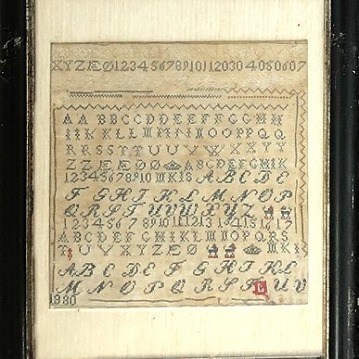 XYZÆØ012345678910112030 4050607
AABBCCDDEEFFGGHH
IIKKLLMMNNOOPPQQ
RRSSTTUUVVXXYY
ZZÆÆØØABCDEFGHIK
12345678910MKISABCDE
FGHIKLMNOP
QRSTUVWXYZ
1234567891011121314151617
ABCDEFGHIKLMNOPQRS
TUVXYZÆØMKI
ABCDEFGHIKL
MNOPQRSTUV
1880